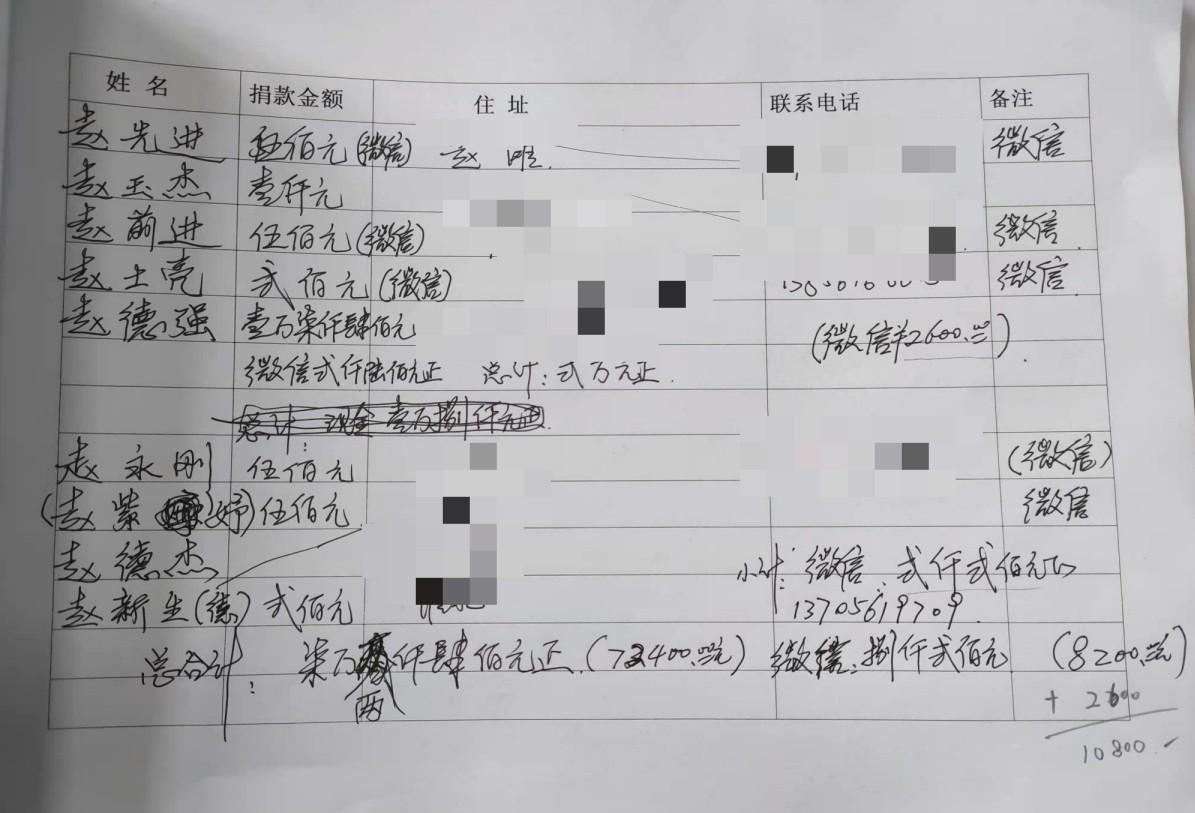 姓名 捐款金额 住址 联系电话 备注
赵先进 伍佰元(微信) 赵 微信
赵玉杰 壹仟元
赵前进 伍佰元(微信) 微信
赵士亮 贰佰元(微信) 微信
赵德强 壹万柒仟肆佰元 (微信¥2600.元)
微信贰仟陆佰元正 总计:贰万元正.
总计:现金壹万捌仟元正
赵永刚 伍佰元 (微信)
(赵紫妤) 伍佰元 微信
赵德杰 小计:微信,贰仟贰佰元
赵新生(德) 贰佰元 13705619709.
总合计: 柒万两仟肆佰元正.(72400.元) 微信:捌仟贰佰元 (8200.元)
+ 2600
10800.